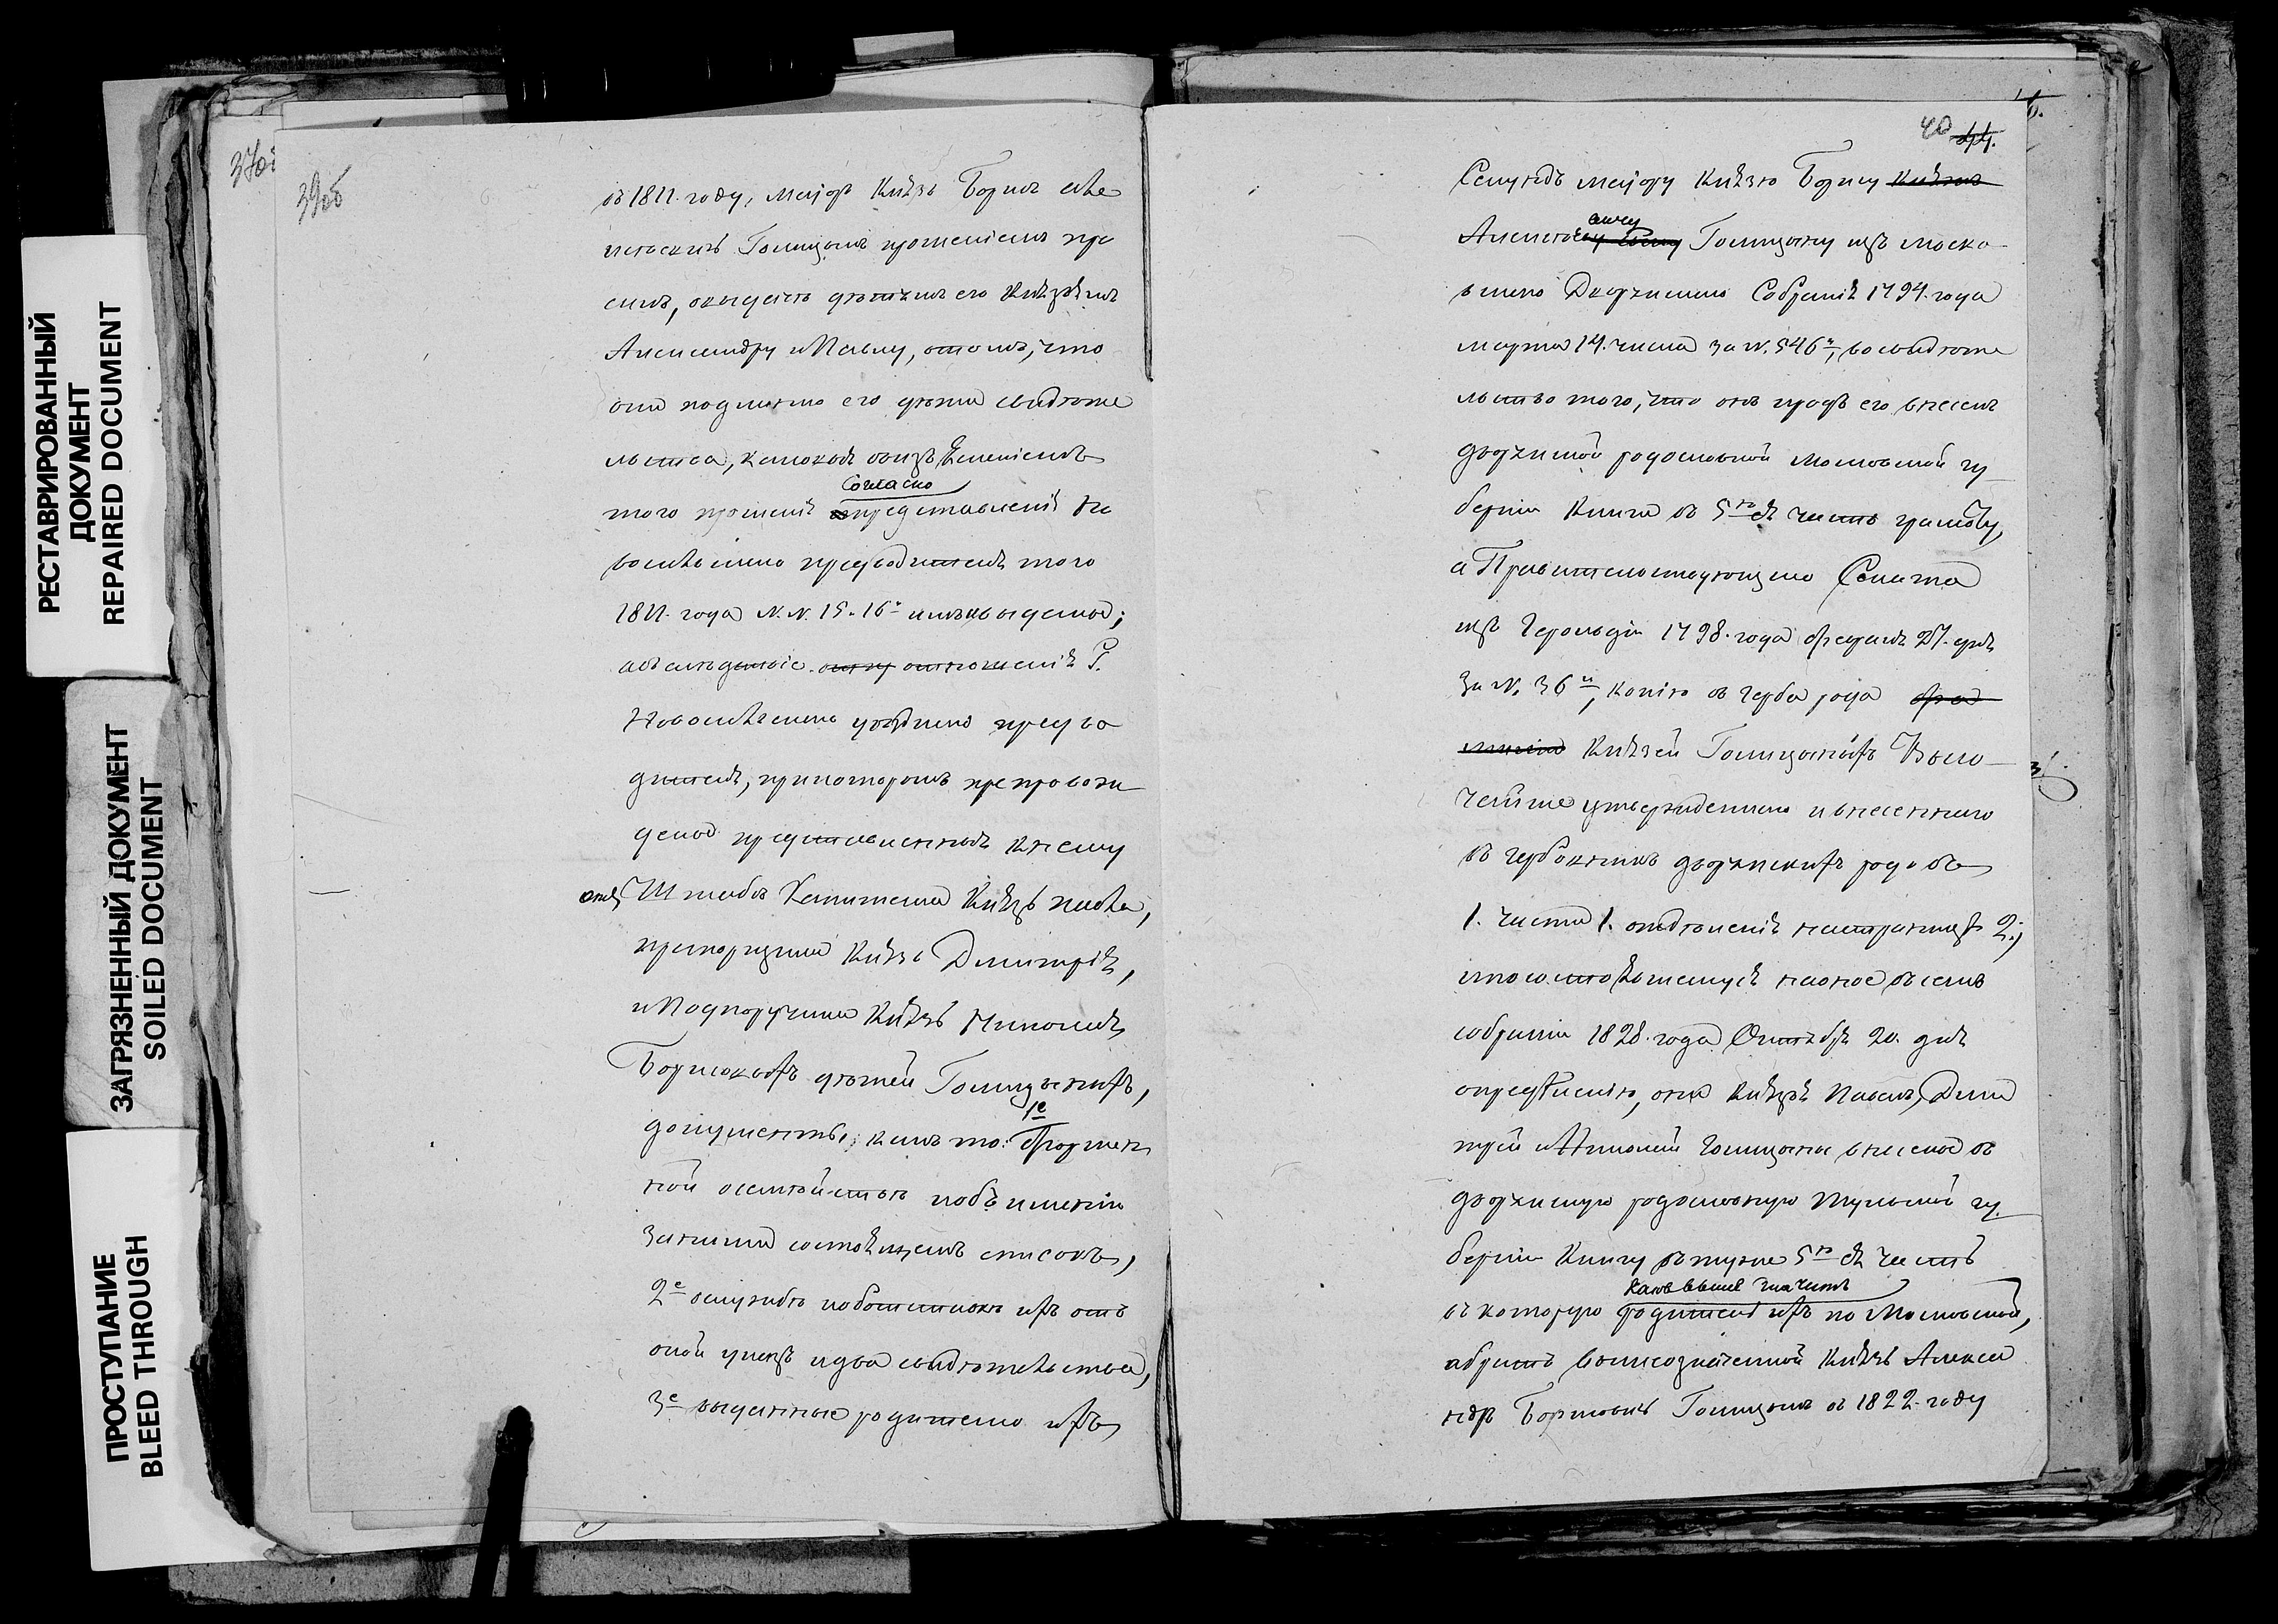 РЕСТАВРИРОВАННЫЙ
ДОКУМЕНТ
REPAIRED DOCUMENT
ЗАГРЯЗНЕННЫЙ ДОКУМЕНТ
SOILED DOCUMENT
ПРОСТУПАНИЕ
BLEED THROUGH
39об
въ 1811. году, Маіоръ Князь Борисъ Але
ксѣевичь Голицынъ прошеніемъ про
силъ, о выдачѣ дѣтямъ его Князьямъ
Александру и Павлу, о томъ, что
они подлинно его дѣти свидѣте
льства, каковыя
того прошенія Согласно представленія Но
восильскаго предводителя того
1811. года N. N. 15. 16. и имъ выданы;
Г.
Новосильскаго уѣзднаго предво
дителя, при которомъ препровож
дены представленныя къ нему
отъ Штабсъ Капитана Князь Павла,
прапорщика Князь Димитрія,
и Подпоручика Князь Николая
Борисовыхъ дѣтей Голицыныхъ,
документы, какъ то: 1е Формен
ной о семействѣ и объ имѣніи
за ними состоящемъ списокъ,
2е о службѣ и объ отставкѣ ихъ отъ
оной указъ и два свидѣтельства,
3е выданные родителю ихъ
40 44.
Секундъ маіору Князю Борису Князь
Алексѣевичу Голицыну изъ Моско
вскаго Дворянскаго Собранія 1794. года
марта 14. числа за N. 546м, во свидѣте
льство того, что онъ и родъ его внесенъ
дворянской родословной Московской гу
берніи Книги въ 5ю ея часть грамоту,
а Правительствующаго Сената
изъ Герольдіи 1798. года Февраля 27. дня
за N. 36м, копію съ герба рода
Князей Голицыныхъ Высо
чайше утвержденнаго и внесеннаго
въ гербовникъ дворянскихъ родовъ
1. части 1. отдѣленія на страницѣ 2;
и по состоявшемуся на оное въ семъ
собраніи 1828. года Октября 20. дня
опредѣленію, они Князья Павелъ, Дими
трій и Николай Голицыны внесены въ
дворянскую родословную Тульской гу
берніи Книгу въ туже 5ю ея часть
въ которую какъ выше значитъ родитель ихъ по Московской,
а братъ вышеозначенной Князь Алекса
ндръ Борисовичь Голицынъ въ 1822. году